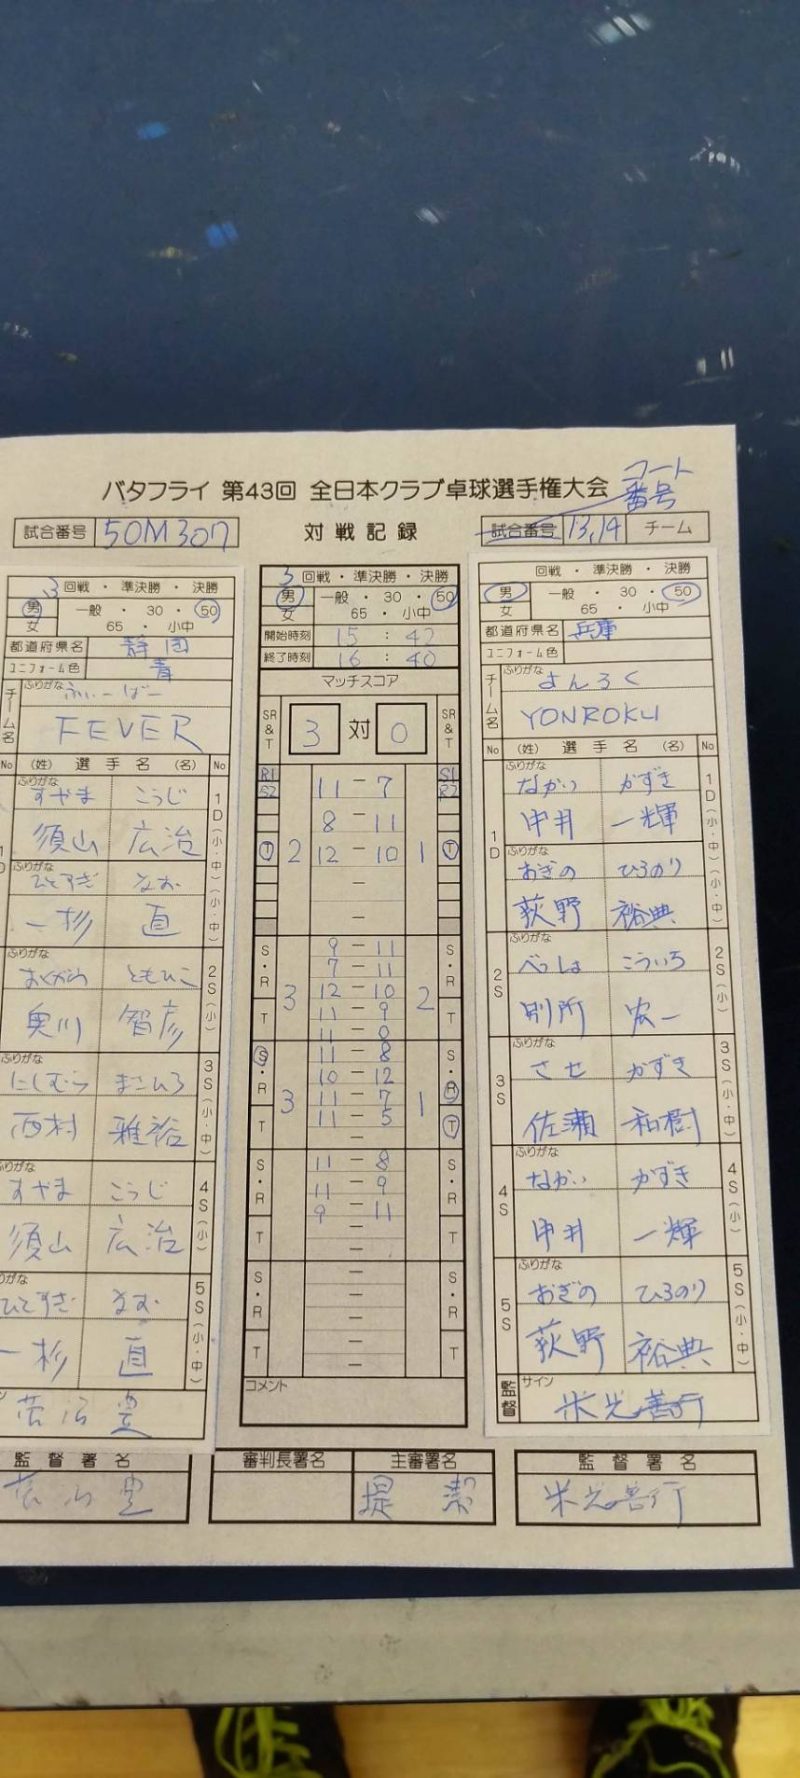 コート
バタフライ 第43回 全日本クラブ卓球選手権大会 番号
試合番号 50M307 対戦記録 試合番号 13,14 チーム
3 回戦・準決勝・決勝
男 一般・30・50
女 65・小中
都道府県名 静岡
ユニフォーム色 青
ふりがな ふぃーばー
チーム名 FEVER
No (姓) 選手名 (名) No
ふりがな すやま こうじ
須山 広治
1D(小・中)
ふりがな ひとすぎ なお
一杉 直
ふりがな おくがわ ともひこ
奥川 智彦
2S(小)
ふりがな にしむら まさひろ
西村 雅裕
3S(小・中)
ふりがな すやま こうじ
須山 広治
4S(小)
ひとすぎ なお
一杉 直
5S(小・中)
監督署名
3 回戦・準決勝・決勝
男 一般・30・50
女 65・小中
開始時刻 15 : 42
終了時刻 16 : 40
マッチスコア
SR&T 3 対 0 SR&T
R1 11 - 7 S1
S2 R2
8 - 11
T 2 12 - 10 1 T
-
-
S・R 9 - 11 S・R
7 - 11
3 12 - 10 2
T 11 - 9 T
11 - 0
S・R 11 - 8 S・R
10 - 12
3 11 - 7 1
T 11 - 5 T
-
S・R 11 - 8 S・R
11 - 9
9 - 11
T - T
-
S・R - S・R
-
-
T - T
-
コメント
審判長署名 主審署名
堤 潔
回戦・準決勝・決勝
男 一般・30・50
女 65・小中
都道府県名 兵庫
ユニフォーム色
ふりがな よんろく
チーム名 YONROKU
No (姓) 選手名 (名) No
ふりがな なかい かずき
中井 一輝
1D 1D(小・中)
ふりがな おぎの ひろのり
荻野 裕典
ふりがな べっしょ こういち
2S 別所 宏一 2S(小)
ふりがな させ かずき
3S 佐瀬 和樹 3S(小・中)
ふりがな なかい かずき
4S 中井 一輝 4S(小)
ふりがな おぎの ひろのり
5S 荻野 裕典 5S(小・中)
監督 サイン 米光善行
監督署名
米光善行